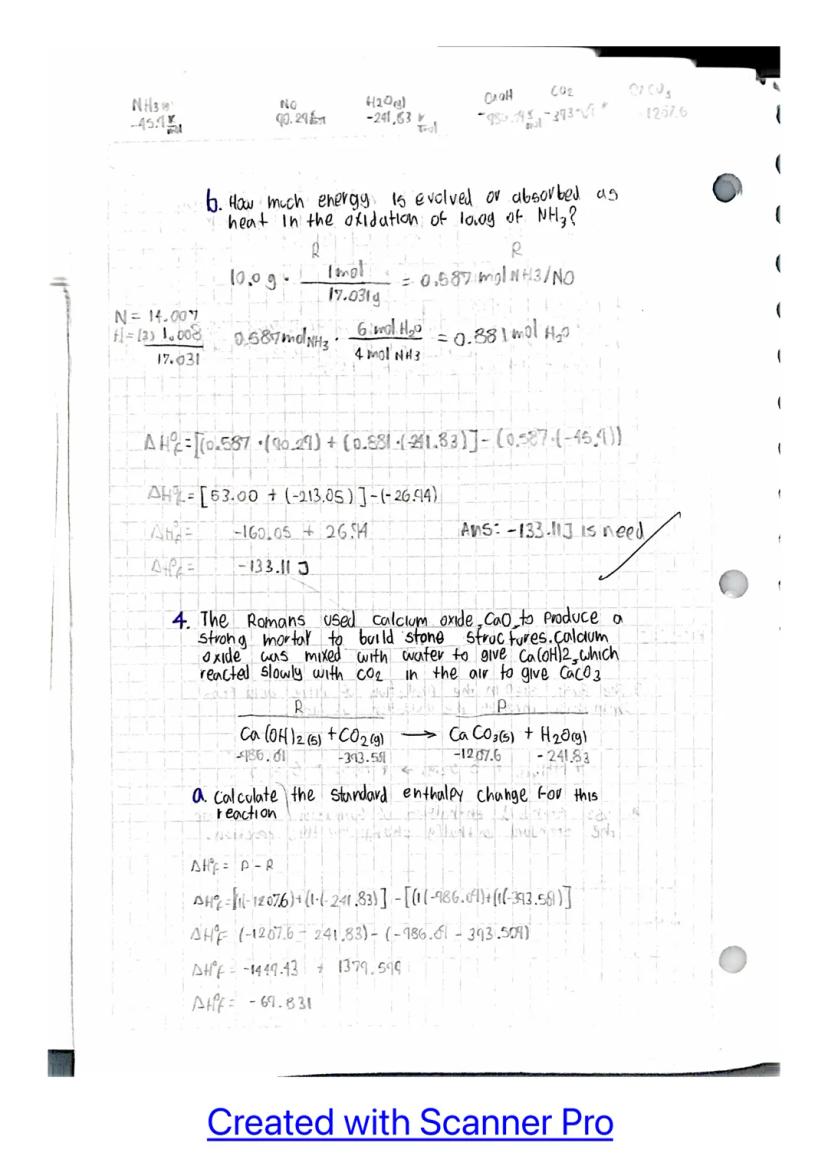 NH3
-45.9 K/mol
NO
90.29
H2O(g)
-241.83 K/mol
CaOH
CO2
-1207.6
b. How much energy is evolved or absorbed as
heat in the oxidation of 10.0g of NH3?
R R
10.0 g · 1mol / 17.031g = 0.587 mol NH3/NO
N = 14.007
H = (3) 1.008
17.031
0.587 mol NH3 · 6 mol H2O / 4 mol NH3 = 0.881 mol H2O
ΔH°f = [(0.587 · (90.29) + (0.881 · (-241.83)] - (0.587 · (-45.9))
ΔH°f = [53.00 + (-213.05)] - (-26.94)
ΔH°f = -160.05 + 26.94
Ans: -133.11J is need
ΔH°f = -133.11 J
4. The Romans used calcium oxide, CaO, to produce a
strong mortar to build stone structures. Calcium
oxide was mixed with water to give Ca(OH)2, which
reacted slowly with CO2 in the air to give CaCO3
R P
Ca(OH)2(s) + CO2(g) → CaCO3(s) + H2O(g)
-393.509 -1207.6 -241.83
a. Calculate the standard enthalpy change for this
reaction
ΔH°f = P - R
ΔH°f = [1(-1207.6) + (1·(-241.83)] - [(1(-986.09) + (1(-393.509)]
ΔH°f = (-1207.6 - 241.83) - (-986.09 - 393.509)
ΔH°f = -1449.43 + 1379.599
ΔH°f = -69.831
Created with Scanner Pro